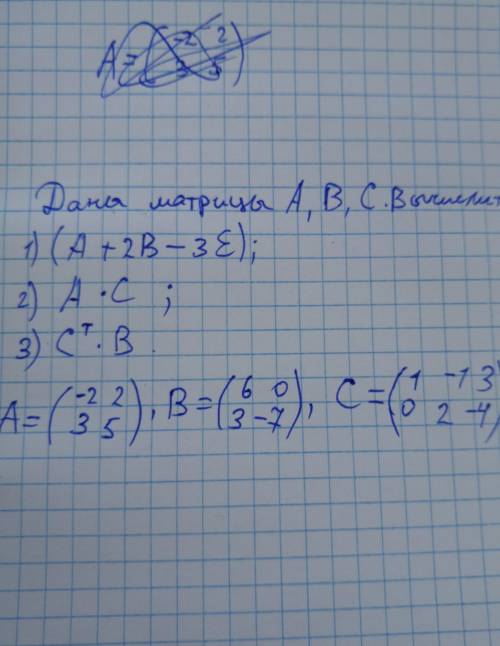 A = (-2 2
3 5)
Даны матрицы A, B, C. Вычислит
1) (A + 2B - 3E);
2) A · C ;
3) Cᵀ · B .
A = (-2 2
3 5), B = (6 0
3 -7), C = (1 -1 3
0 2 -4)